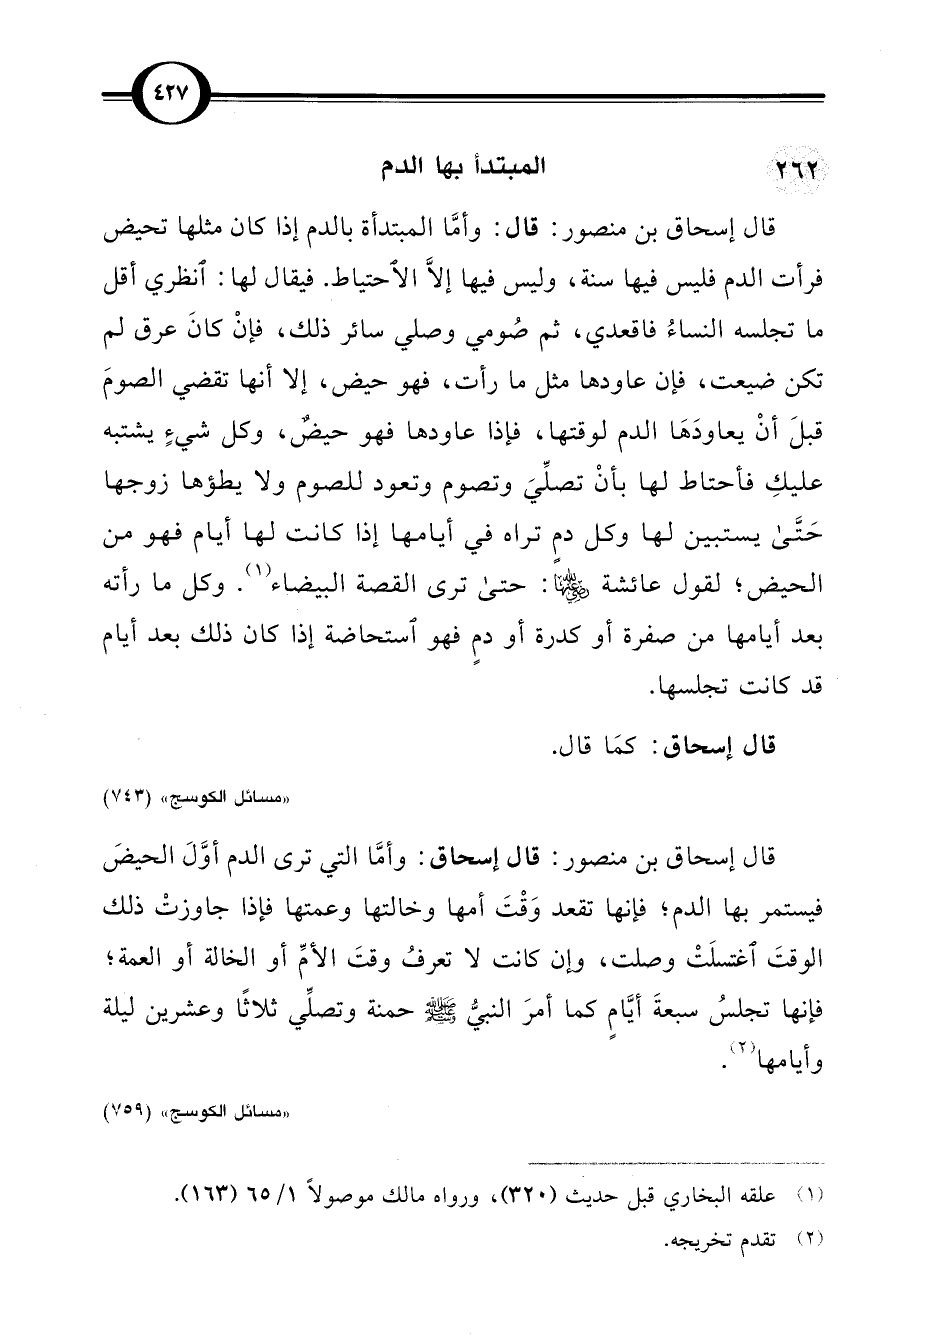 ٤٢٧
٢٦٢ المبتدأ بها الدم
قال إسحاق بن منصور: قال: وأمَّا المبتدأة بالدم إذا كان مثلها تحيض
فرأت الدم فليس فيها سنة، وليس فيها إلاَّ الاٌحتياط. فيقال لها: ٱنظري أقل
ما تجلسه النساءُ فاقعدي، ثم صُومي وصلي سائر ذلك، فإنْ كانَ عرق لم
تكن ضيعت، فإن عاودها مثل ما رأت، فهو حيض، إلا أنها تقضي الصومَ
قبلَ أنْ يعاودَهَا الدم لوقتها، فإذا عاودها فهو حيضٌ، وكل شيءٍ يشتبه
عليكِ فأحتاط لها بأنْ تصلِّيَ وتصوم وتعود للصوم ولا يطؤها زوجها
حَتَّىٰ يستبين لها وكل دمٍ تراه في أيامها إذا كانت لها أيام فهو من
الحيض؛ لقول عائشة رضي الله عنها: حتىٰ ترى القصة البيضاء(١). وكل ما رأته
بعد أيامها من صفرة أو كدرة أو دمٍ فهو ٱستحاضة إذا كان ذلك بعد أيام
قد كانت تجلسها.
قال إسحاق: كمَا قال.
«مسائل الكوسج» (٧٤٣)
قال إسحاق بن منصور: قال إسحاق: وأمَّا التي ترى الدم أوَّلَ الحيضَ
فيستمر بها الدم؛ فإنها تقعد وَقْتَ أمها وخالتها وعمتها فإذا جاوزتْ ذلك
الوقتَ ٱغتسلَتْ وصلت، وإن كانت لا تعرفُ وقتَ الأمِّ أو الخالة أو العمة؛
فإنها تجلسُ سبعةَ أيَّامٍ كما أمرَ النبيُّ ﷺ حمنة وتصلِّي ثلاثًا وعشرين ليلة
وأيامها(٢).
«مسائل الكوسج» (٧٥٩)
(١) علقه البخاري قبل حديث (٣٢٠)، ورواه مالك موصولاً ١/ ٦٥ (١٦٣).
(٢) تقدم تخريجه.